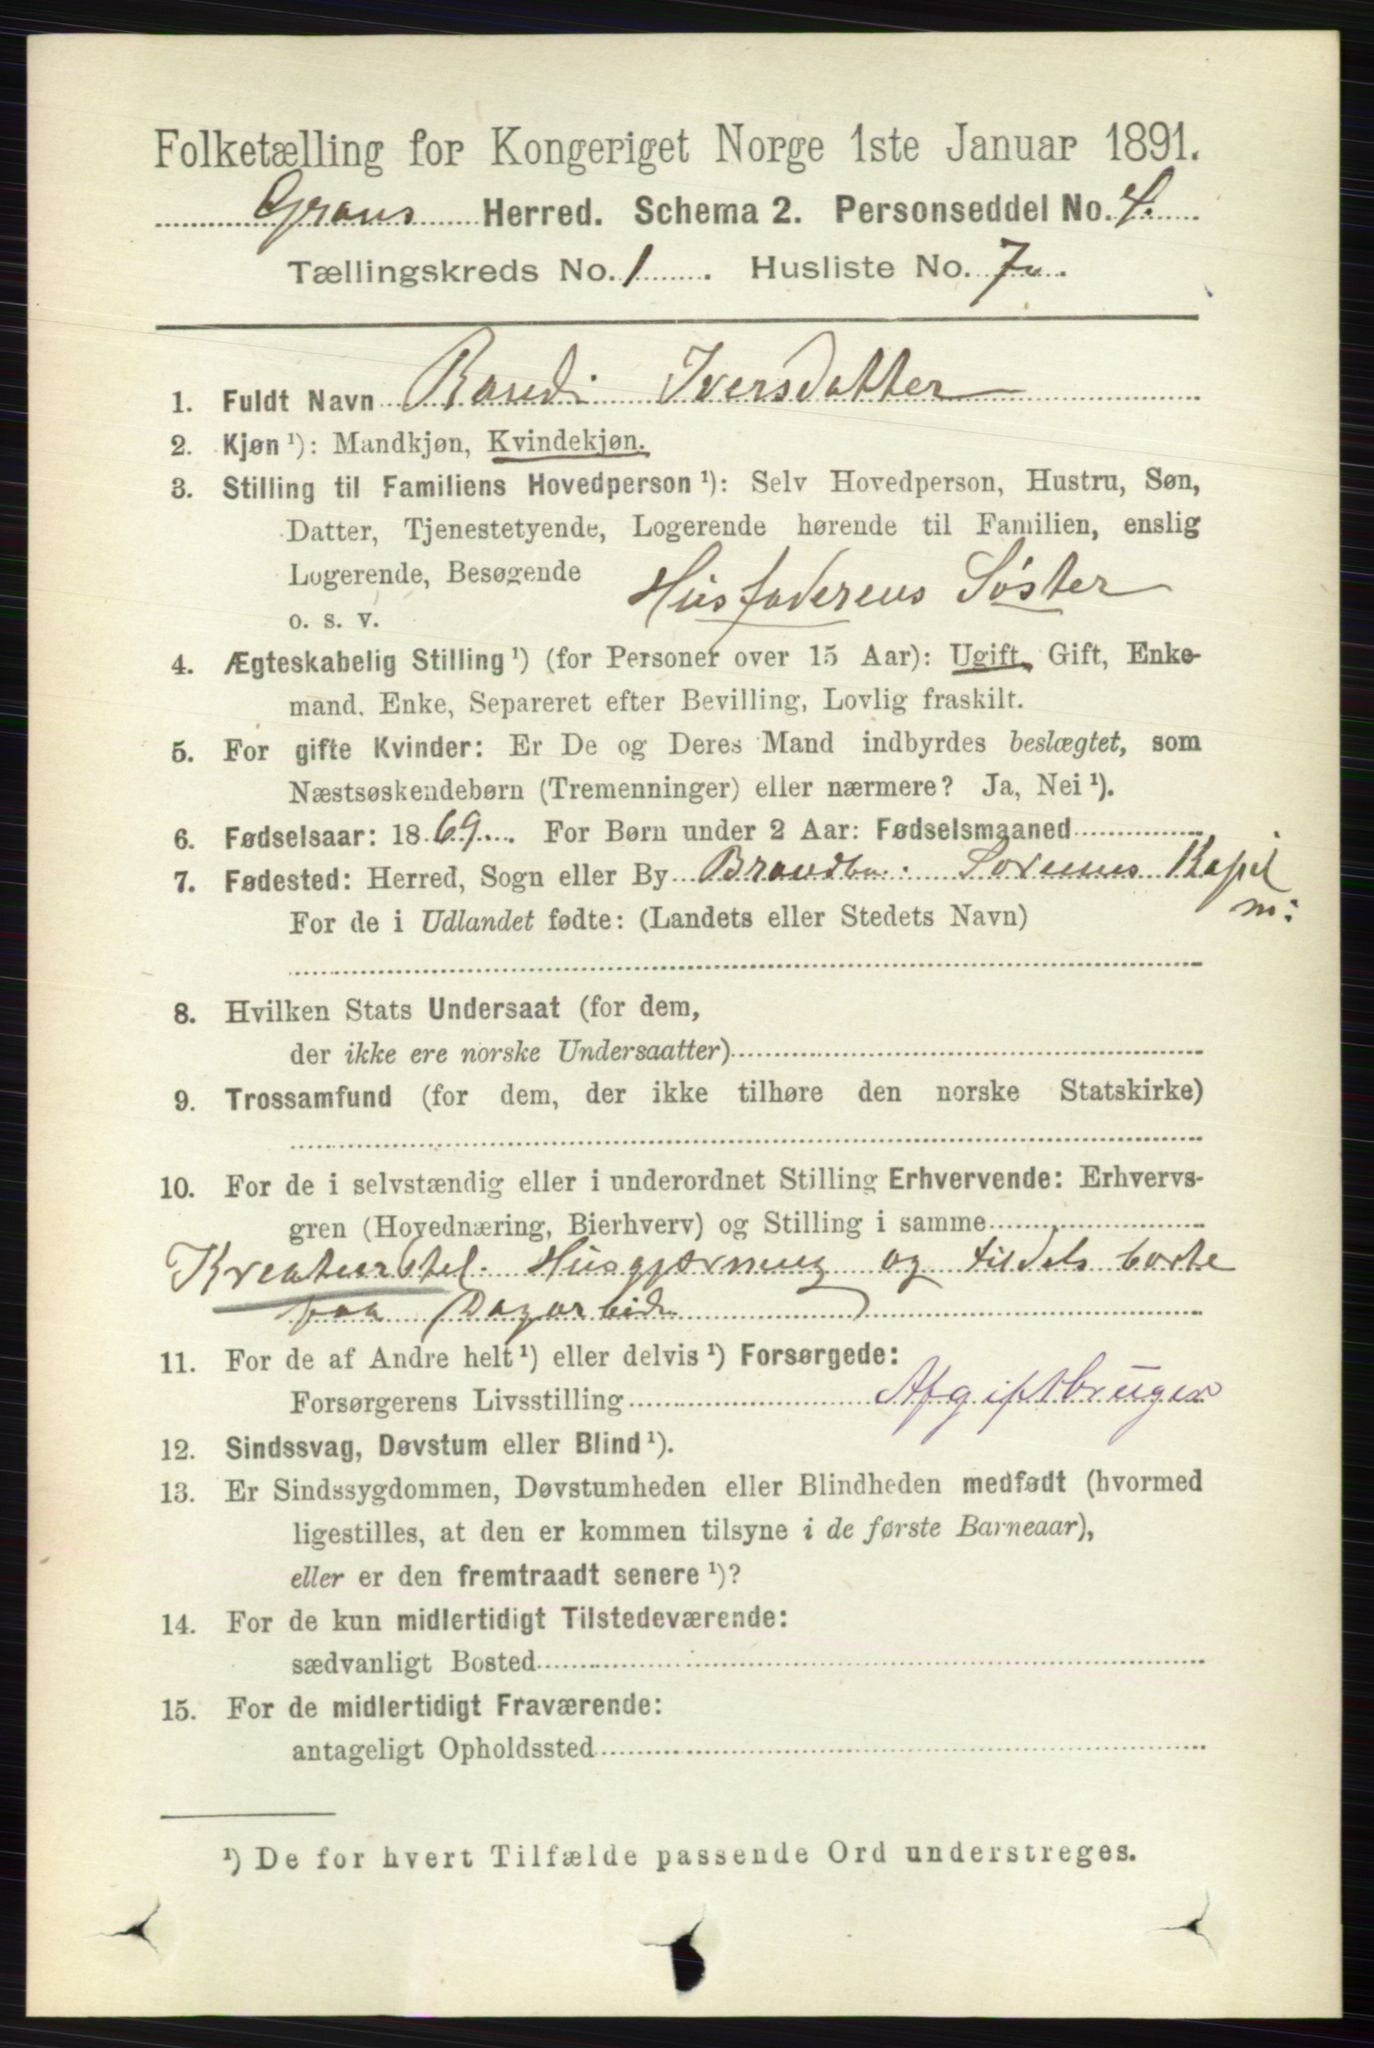 Folketælling for Kongeriget Norge 1ste Januar 1891.
Grans Herred. Schema 2. Personseddel No. 4.
Tællingskreds No. 1. Husliste No. 7.
1. Fuldt Navn Randi Iversdatter
2. Kjøn¹): Mandkjøn, Kvindekjøn.
3. Stilling til Familiens Hovedperson¹): Selv Hovedperson, Hustru, Søn,
Datter, Tjenestetyende, Logerende hørende til Familien, enslig
Logerende, Besøgende
o. s. v. Husfaderens Søster
4. Ægteskabelig Stilling¹) (for Personer over 15 Aar): Ugift, Gift, Enke-
mand, Enke, Separeret efter Bevilling, Lovlig fraskilt.
5. For gifte Kvinder: Er De og Deres Mand indbyrdes beslægtet, som
Næstsøskendebørn (Tremenninger) eller nærmere? Ja, Nei¹).
6. Fødselsaar: 1869. For Børn under 2 Aar: Fødselsmaaned
7. Fødested: Herred, Sogn eller By Brandbu. Kapel
For de i Udlandet fødte: (Landets eller Stedets Navn)
8. Hvilken Stats Undersaat (for dem,
der ikke ere norske Undersaatter)
9. Trossamfund (for dem, der ikke tilhøre den norske Statskirke)
10. For de i selvstændig eller i underordnet Stilling Erhvervende: Erhvervs-
gren (Hovednæring, Bierhverv) og Stilling i samme
Kreaturstel. Husgjærning og tildels borte
paa Dagarbeide
11. For de af Andre helt¹) eller delvis¹) Forsørgede:
Forsørgerens Livsstilling Afgiftbruger
12. Sindssvag, Døvstum eller Blind¹).
13. Er Sindssygdommen, Døvstumheden eller Blindheden medfødt (hvormed
ligestilles, at den er kommen tilsyne i de første Barneaar),
eller er den fremtraadt senere¹)?
14. For de kun midlertidigt Tilstedeværende:
sædvanligt Bosted
15. For de midlertidigt Fraværende:
antageligt Opholdssted
¹) De for hvert Tilfælde passende Ord understreges.